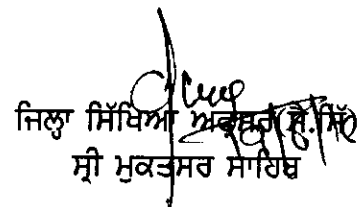 ਜਿਲ੍ਹਾ ਸਿੱਖਿਆ ਅਫ਼ਸਰ(ਸੈ.ਸਿੱ)
ਸ੍ਰੀ ਮੁਕਤਸਰ ਸਾਹਿਬ